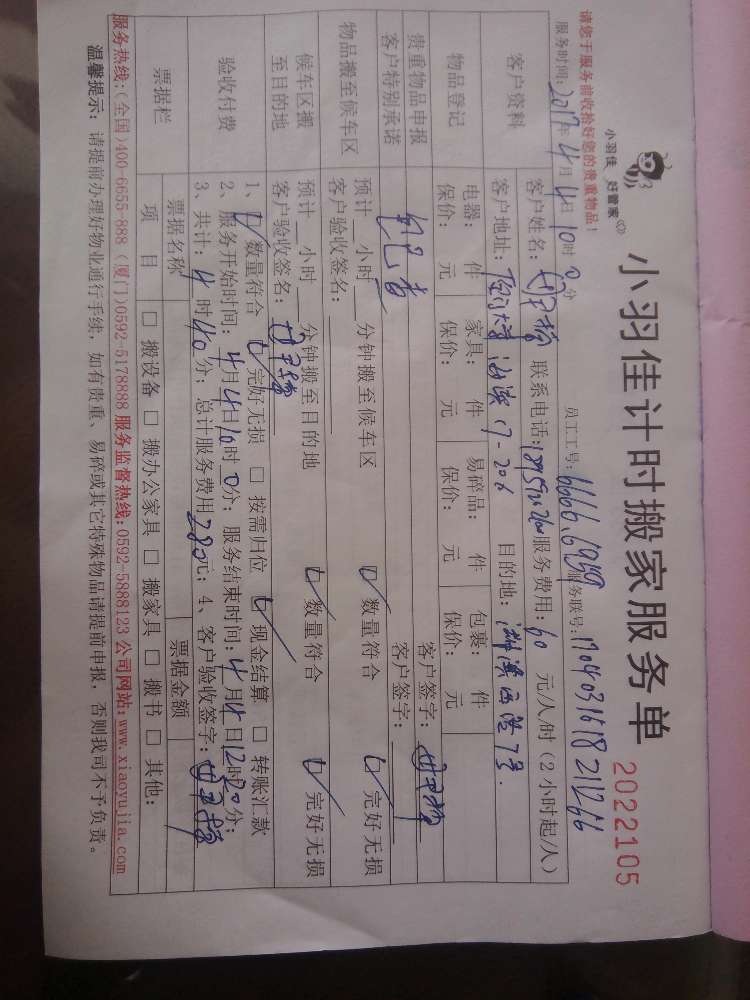 小羽佳 好管家
小羽佳计时搬家服务单 2022105
请您于服务前收拾好您的贵重物品！ 员工工号: 6666.6959 服务联号: 170403161821266
服务时间: 2017年4月4日10时0分
客户资料 客户姓名: 联系电话: 服务费用: 60 元/人/时(2小时起/人)
客户地址: 目的地:
物品登记 电器: 件 家具: 件 易碎品: 件 包裹: 件
保价: 元 保价: 元 保价: 元 保价: 元
贵重物品申报 客户签字:
客户特别承诺 客户签字:
物品搬至候车区 预计 小时 分钟搬至候车区 数量符合 完好无损
客户验收签名:
候车区搬至目的地 预计 小时 分钟搬至目的地 数量符合 完好无损
客户验收签名:
验收付费 1、 数量符合 完好无损 □ 按需归位 现金结算 □ 转账汇款
2、服务开始时间: 4月4日10时0分; 服务结束时间: 4月4日12时20分;
3、共计: 4时40分; 总计服务费用280元; 4、客户验收签字:
票据栏 票据名称 票据金额
项目 □ 搬设备 □ 搬办公家具 □ 搬家具 □ 搬书 □ 其他:
服务热线:(全国)400-6655-888 (厦门)0592-5178888 服务监督热线:0592-5888123 公司网站:www.xiaoyujia.com
温馨提示: 请提前办理好物业通行手续, 如有贵重、易碎或其它特殊物品请提前申报, 否则我司不予负责。